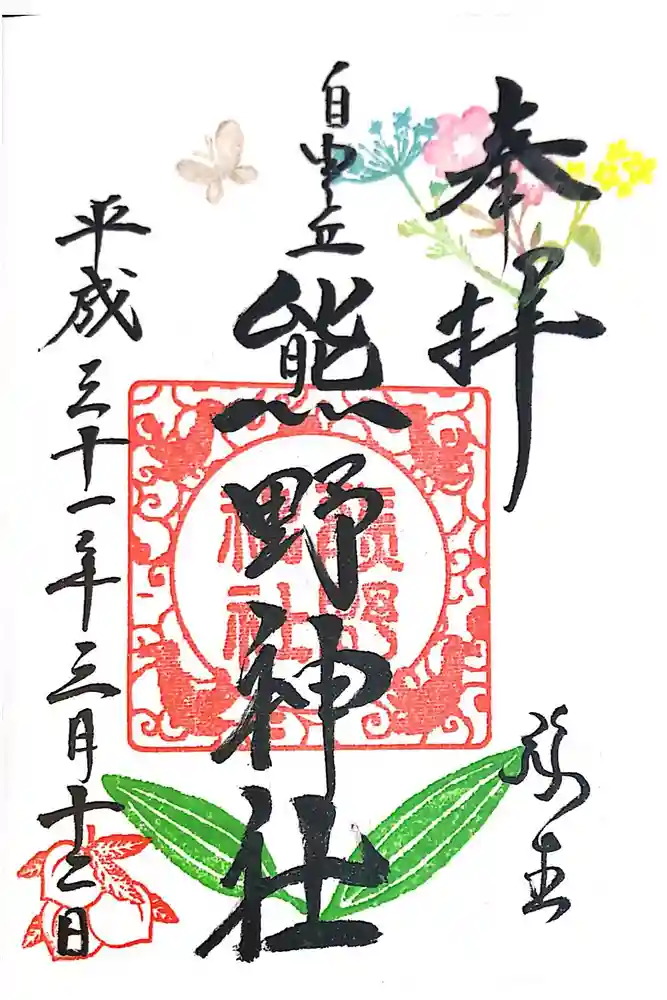 奉拝
弥生
自由丘
熊野神社
熊野
神社
平成三十一年三月十二日